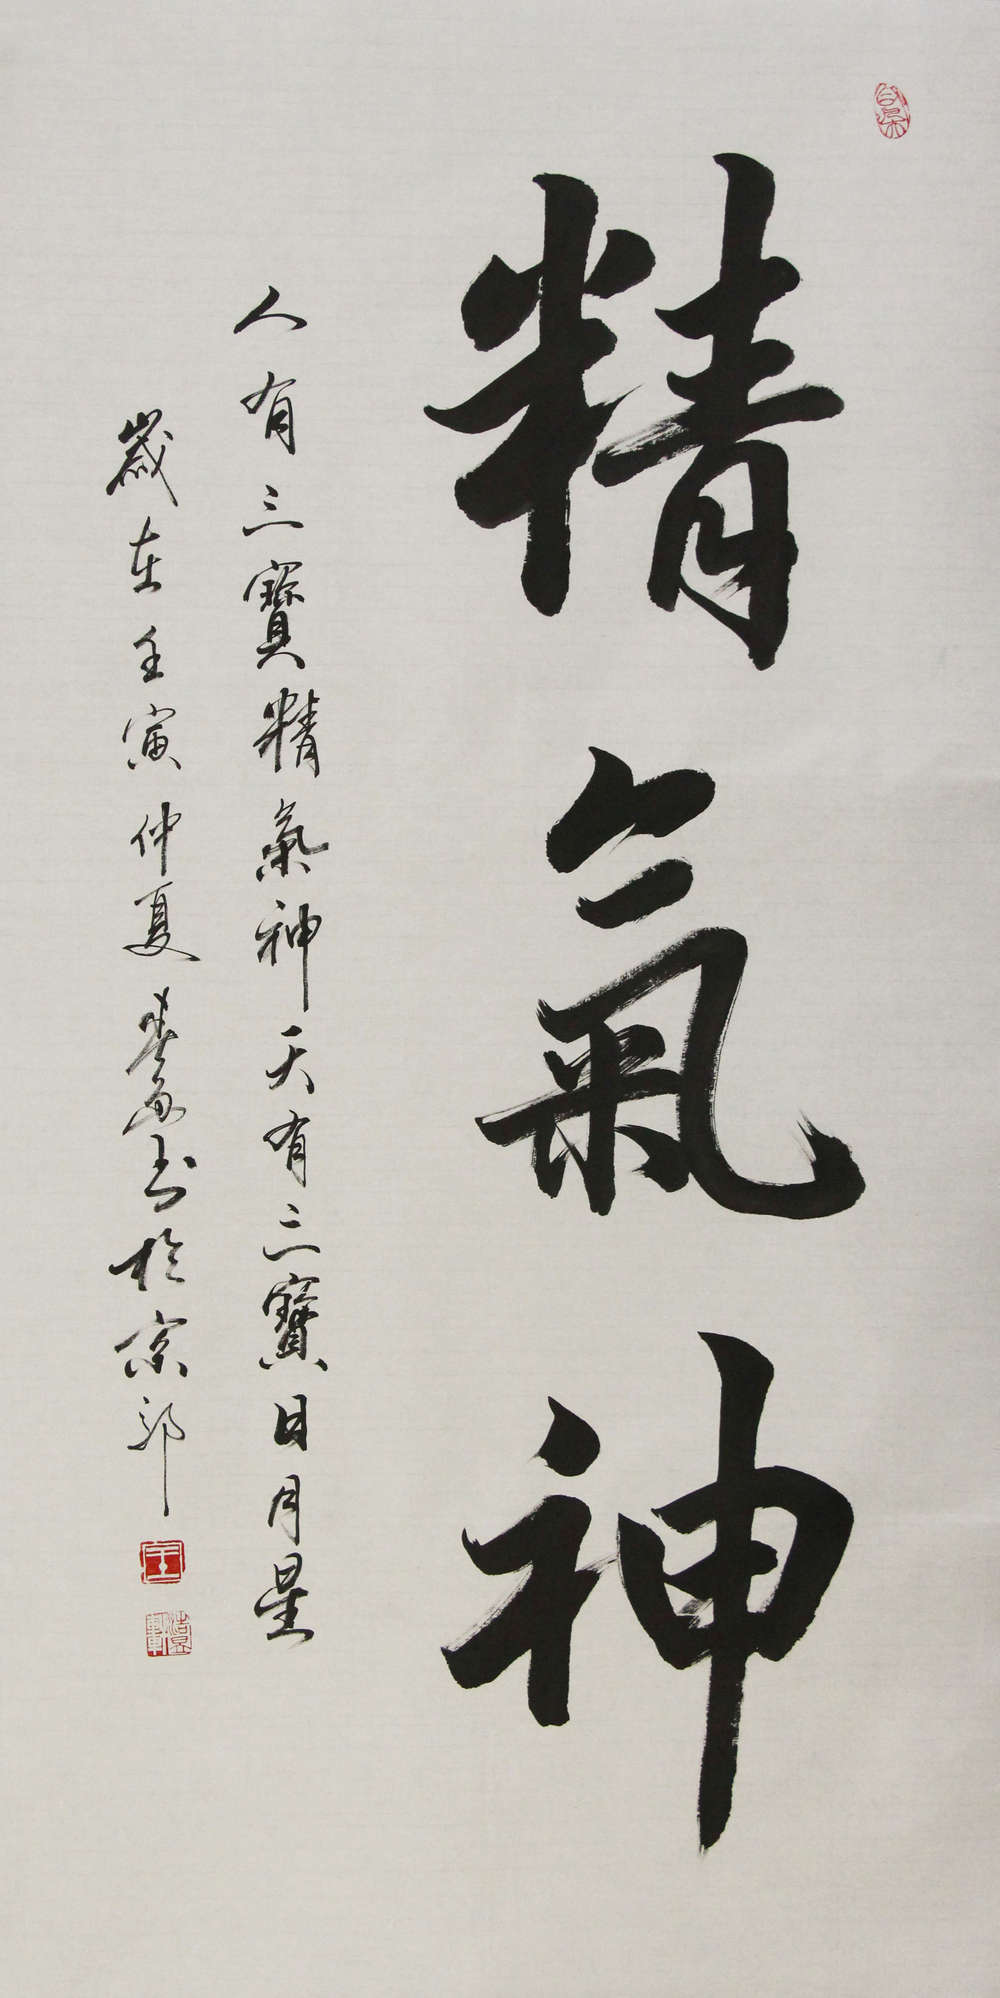 精氣神
人有三寶精氣神天有三寶日月星
歲在壬寅仲夏書於京郊